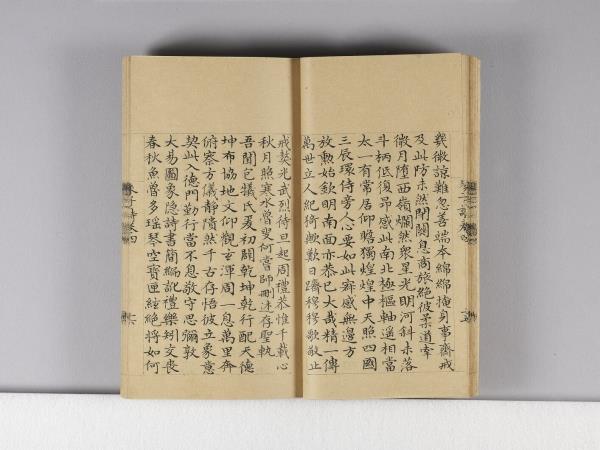 幾微諒難忽善端本綿綿掩身事齋戒
及此防未然閉關息商旅絕彼柔道牽
微月墮西嶺爛然衆星光明河斜未落
斗柄低復昂感此南北極樞軸遙相當
太一有常居仰瞻獨煌煌中天照四國
三辰環侍旁人心要如此寂感無邊方
放勳始欽明南面亦恭已大哉精一傳
萬世立人紀猗歟歎日躋穆穆歌敬止
戒獒光武烈待旦起周禮恭惟千載心
秋月照寒水魯叟何常師刪述存聖軌
吾聞包犧氏爰初闢乾坤乾行配天德
坤布協地文仰觀玄渾周一息萬里奔
俯察方儀靜隤然千古存悟彼立象意
契此入德門勤行當不息敬守思彌敦
大易圖象隱詩書簡編訛禮樂矧交喪
春秋魚魯多瑤琴空寶匣絃絕將如何